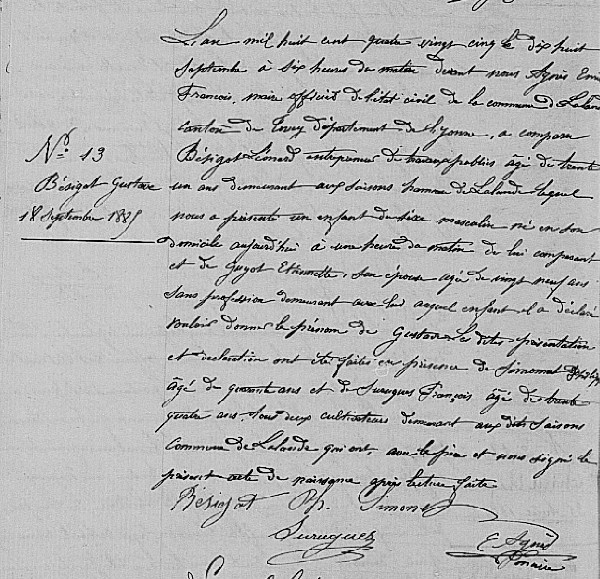 L'an mil huit cent quatre vingt cinq le dix huit
Septembre à six heures du matin devant nous Agnès
François, maire officier de l'état civil de la commune de Lalande
canton de Toucy département de l'Yonne, a comparu
Bésigot Léonard entrepreneur de travaux publics agé de trente
un ans demeurant aux Saisons commune de Lalande lequel
nous a présenté un enfant du sexe masculin né en son
domicile aujourd'hui à une heure du matin de lui comparant
et de Guyot Etiennette, son épouse agée de vingt neuf ans
sans profession demeurant avec lui auquel enfant il a déclaré
vouloir donner le prénom de Gustave les dites présentation
et déclaration ont été faites en présence de Simonet
âgé de quarante ans et de Surugues François âgé de trente
quatre ans, tous deux cultivateurs demeurant aux dits Saisons
Commune de Lalande qui ont, avec le père et nous signé le
présent acte de naissance après lecture faite
Bésigot Ph. Simonet
Surugues
E. Agnès
maire
No 13
Bésigot Gustave
18 Septembre 1885